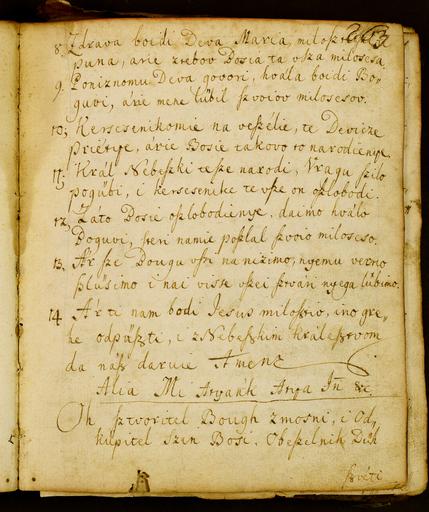 263
8. Zdrava boidi Deva Maria, milosztum
puna, arie zrebov Bosia ta vsza milosesa
9. Poniznomu Deva govori, hvala boidi Bo-
guvi, árie mene lúbil szvoiov milosesov.
10; Kersesenikomie na veszélie, te Devicze
Prietye, arie Bosie takovo ro narodienye.
11; Král Nebeszki tesze narodi, Vragu szilo
pogúbi, i kersesenike te vsze on oszlobodi.
12, Zato Bosie oszlobodienye, daimo hválo
Boguvi, steri namie poszlal szvoio miloseso.
13. Ár sze Bougu vszi nanizimo, nyemu verno
szlúsimo i nai visse vszei sztvári nyega lúbimo.
14. Ár ti nam bodi Jesus milosztio, ino gre-
he odpúszti, i z Nebeszkim Králesztvom
da nász daruie Amen
Alia Mi Aryánk Atya In &c.
Oh sztvoritel Bough zmosni, i Od,
kúpitel szin Bosi, Obeszelnik Dúh
szvéti